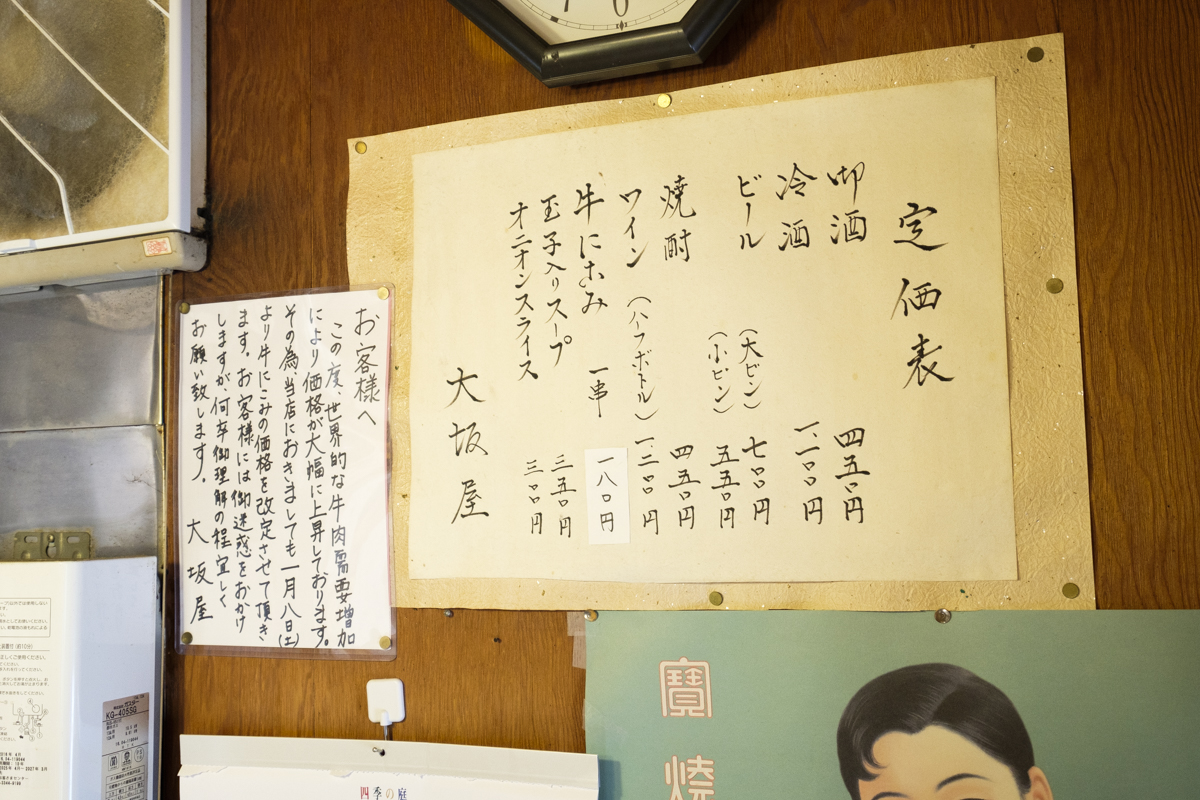 定価表
御酒 四五〇円
冷酒 一、一〇〇円
ビール (大ビン) 七〇〇円
(小ビン) 五五〇円
焼酎 四五〇円
ワイン (ハーフボトル) 一、二〇〇円
牛にこみ 一串 一八〇円
玉子入りスープ 三五〇円
オニオンスライス 三〇〇円
大坂屋
お客様へ
この度、世界的な牛肉需要増加
により価格が大幅に上昇しております。
その為当店におきましても一月八日(土)
より牛にこみの価格を改定させて頂き
ます。お客様には御迷惑をおかけ
しますが、何卒御理解の程宜しく
お願い致します。 大坂屋
寶焼
四季の庭
KG-405SG